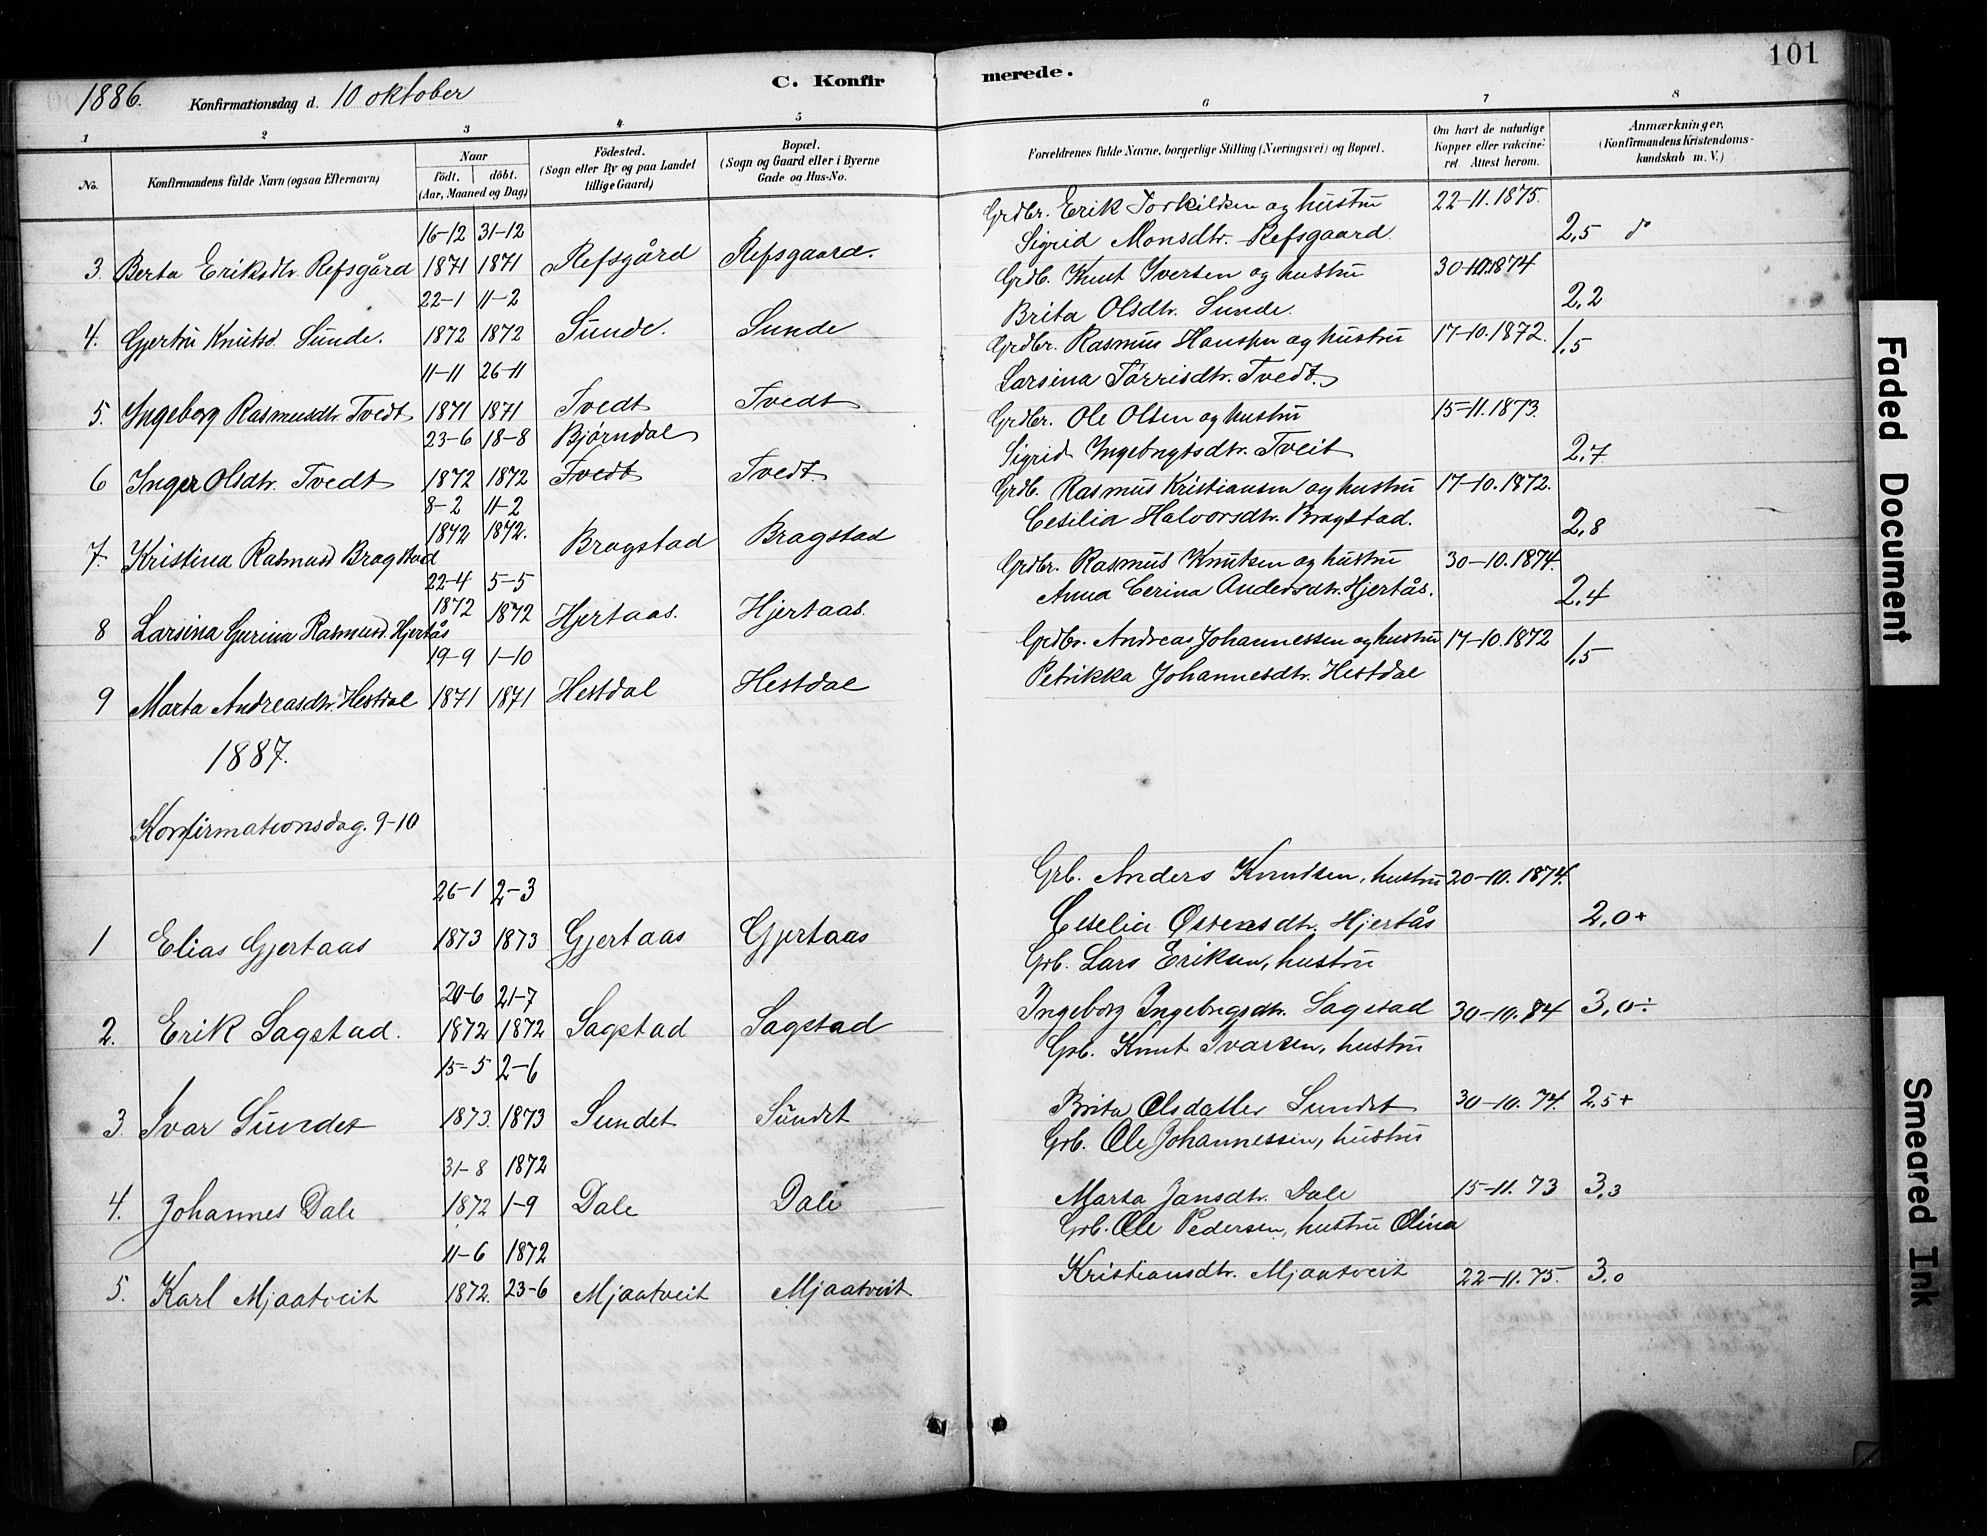 101
1886. Konfirmationsdag d. 10 oktober C. Konfirmerede.
1 2 3 4 5 6 7 8
No. Konfirmandens fulde Navn (ogsaa Efternavn) Naar födt. döbt. (Aar, Maaned og Dag) Födested. (Sogn eller By og paa Landet tillige Gaard) Bopæl. (Sogn og Gaard eller i Byerne Gade og Hus-No. Forældrenes fulde Navne, borgerlige Stilling (Næringsvei) og Bopæl. Om havt de naturlige Kopper eller vakcineret Attest herom. Anmærkninger. (Konfirmandens Kristendomskundskab m. V.)
16-12 31-12 Grdbr. Erik Torkildsen og hustru 22-11.1875.
3. Berta Eriksdtr. Refsgård 1871 1871 Refsgård Refsgaard. Sigrid Monsdtr. Refsgaard 2,5
22-1 11-2 Grdb. Knut Iversen og hustru 30-10.1874
4. Gjertru Knutsd. Sunde. 1872 1872 Sunde. Sunde Brita Olsdtr. Sunde. 2,2
11-11 26-11 Grdbr. Rasmus Hansen og hustru 17-10.1872. 1,5
5. Ingeborg Rasmusdtr. Tvedt 1871 1871 Tvedt Tvedt Larsina Törrisdtr. Tvedt.
23-6 18-8 Bjørndal Grdbr. Ole Olsen og hustru 15-11.1873.
6 Inger Olsdtr. Tvedt 1872 1872 Tvedt Tvedt Sigrid Ingebrigtsdtr. Tveit 2,7
8-2 11-2 Grdb. Rasmus Kristiansen og hustru 17-10.1872.
7. Kristina Rasmusd Bragstad 1872 1872. Bragstad Bragstad Cesilia Halvorsdtr. Bragstad. 2,8
22-4 5-5 Grdbr. Rasmus Knutsen og hustru 30-10.1874.
8 Larsina Gurina Rasmusd. Hjertås 1872 1872 Hjertaas. Hjertaas. Anna Cerina Andersdtr. Hjertås. 2,4
19-9 1-10 Grdbr. Andreas Johannessen og hustru 17-10.1872
9 Marta Andreasdtr. Hestdal 1871 1871 Hestdal Hestdal Petrikka Johannesdtr. Hestdal 1,5
1887.
Konfirmationsdag. 9-10
26-1 2-3 Grb. Anders Knudsen, hustru 20-10.1874.
1 Elias Gjertaas 1873 1873 Gjertaas Gjertaas Ceselia Østensdtr. Hjertås 2,0+
20-6 21-7 Grb. Lars Eriksen, hustru
2. Erik Sagstad. 1872 1872 Sagstad Sagstad Ingeborg Ingebrigsdtr. Sagstad 30-10.84 3,0÷
15-5 2-6 Grb. Knut Ivarsen, hustru
3. Ivar Sundet 1873. 1873 Sundet Sundet Brita Olsdatter Sundet 30-10.74. 2,5+
31-8 1872 Grb. Ole Johannessen, hustru
4. Johannes Dale 1872 1-9 Dale Dale Marta Jansdtr. Dale 15-11.73 3,3
11-6 1872 Grb. Ole Pedersen, hustru Olina
5. Karl Mjaatveit 1872. 23-6 Mjaatveit Mjaatveit Kristiansdtr. Mjaatveit 22-11.75. 3,0
Faded Document
Smeared Ink